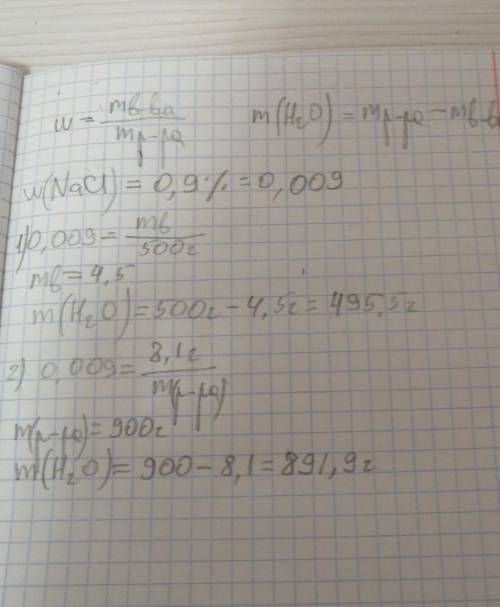 w = mв-ва / mр-ра m(H₂O) = mр-ра − mв-ва
w(NaCl) = 0,9% = 0,009
1) 0,009 = mв / 500г
mв = 4,5
m(H₂O) = 500г − 4,5г = 495,5г
2) 0,009 = 8,1г / m(р-ра)
m(р-ра) = 900г
m(H₂O) = 900 − 8,1 = 891,9г